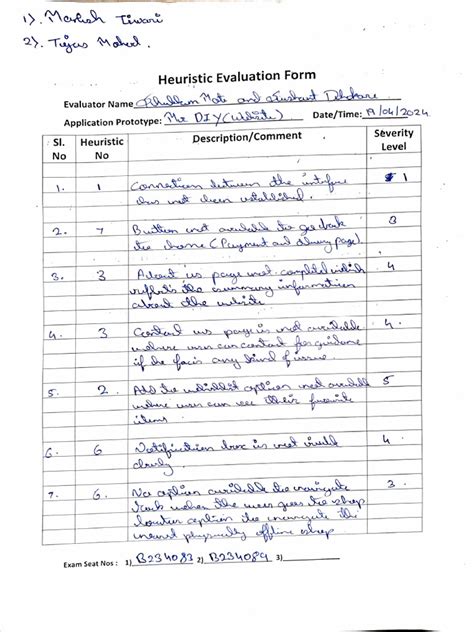 1). Tiwari
2).
Heuristic Evaluation Form
Evaluator Name and
Application Prototype: Mr DIY (website) Date/Time: 19/04/2024
Sl. No Heuristic No Description/Comment Severity Level
1. 1 Connection between the interface 1
has not been established.
2. 7 Button not available to go back
to home (Payment and page).
3. 3 About us page not completed which 4
reflects the summary information
about the website
4. 3 Contact us page is not available 4.
where user can contact for guidance
if he any kind of issue.
5. 2. Add the option not available 5
where user can see their favorite
items.
6. 6 Notification box is not visible 4
clearly.
7. 6. No option available to navigate 3.
back when the user goes to shop
location option to navigate the
nearest physically offline shop
Exam Seat Nos : 1) B234083 2) B234089 3)